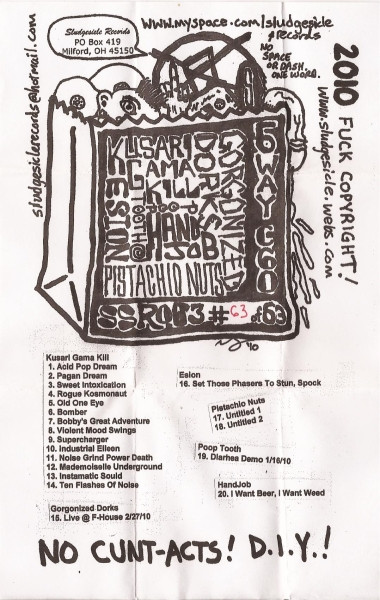 www.myspace.com/sludgesicle
records
NO
SPACE
OR DASH
ONE WORD.
Sludgesicle Records
PO Box 419
Milford, OH 45150
sludgesiclerecords@hotmail.com
2010 FUCK COPYRIGHT!
www.sludgesicle.webs.com
KUSARI
GAMA
KILL
ESION
POOP
TOOTH
HAND
JOB
GORGONIZED
DORKS
PISTACHIO NUTS
6 WAY C60
SSR013 #63 of 63
'10
Kusari Gama Kill
1. Acid Pop Dream
2. Pagan Dream
3. Sweet Intoxication
4. Rogue Kosmonaut
5. Old One Eye
6. Bomber
7. Bobby's Great Adventure
8. Violent Mood Swings
9. Supercharger
10. Industrial Eileen
11. Noise Grind Power Death
12. Mademoiselle Underground
13. Instamatic Sould
14. Ten Flashes Of Noise
Gorgonized Dorks
15. Live @ F-House 2/27/10
Esion
16. Set Those Phasers To Stun, Spock
Pistachio Nuts
17. Untitled 1
18. Untitled 2
Poop Tooth
19. Diarhea Demo 1/16/10
HandJob
20. I Want Beer, I Want Weed
NO CUNT-ACTS! D.I.Y.!